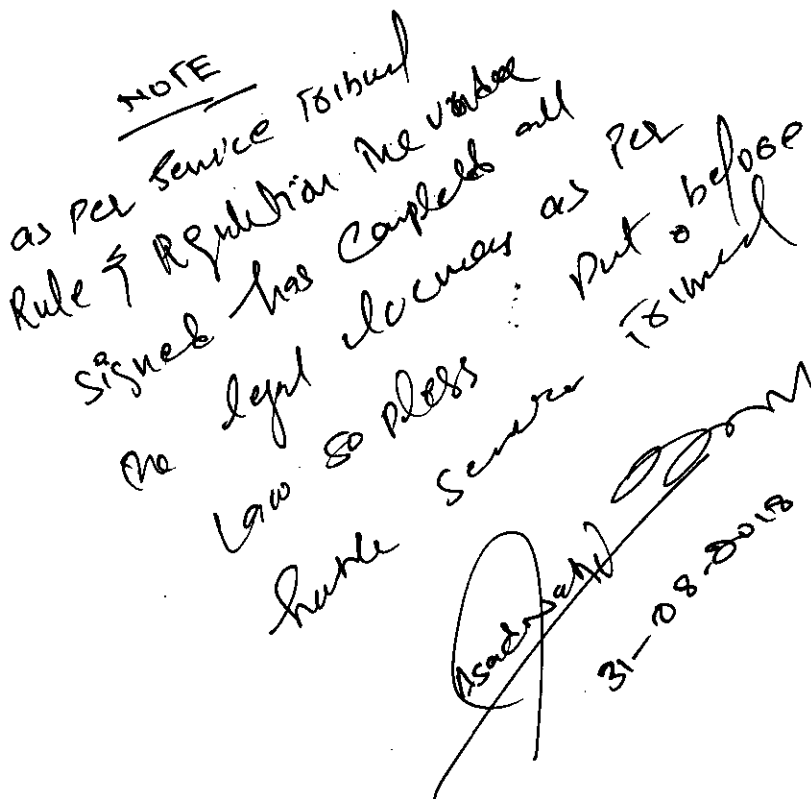 NOTE
as per Service Tribunal
Rule & Regulation the under
signed has completed all
the legal documents as per
Law so please put before
Service Tribunal
31-08-2018